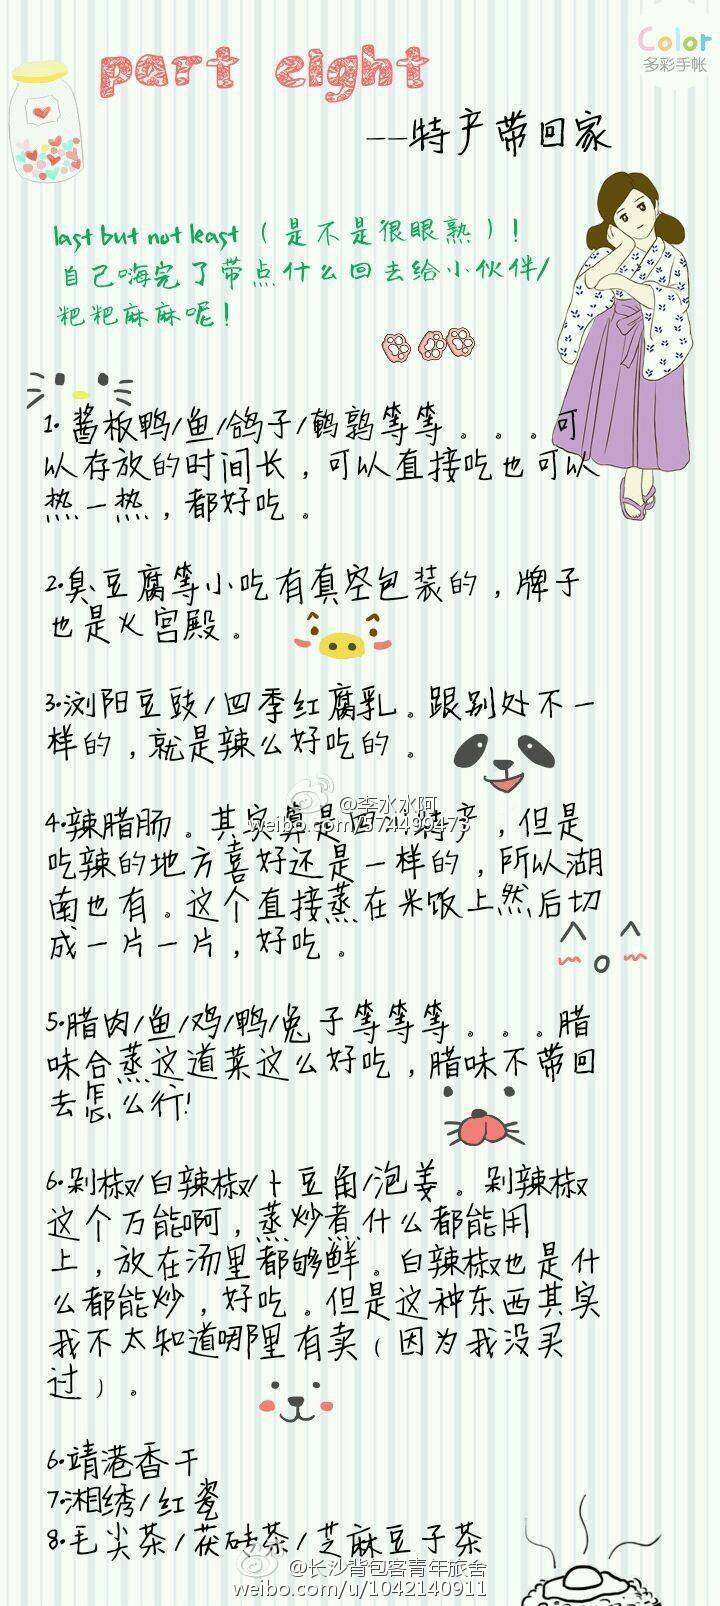 Color
多彩手帐
part eight
--特产带回家
last but not least（是不是很眼熟）！
自己嗨完了带点什么回去给小伙伴/
粑粑麻麻呢！
1·酱板鸭/鱼/鸽子/鹌鹑等等。。。可
以存放的时间长，可以直接吃也可以
热一热，都好吃。
2·臭豆腐等小吃有真空包装的，牌子
也是火宫殿。
3·浏阳豆豉/四季红腐乳。跟别处不一
样的，就是辣么好吃的。
@李水水阿
weibo.com/574499473
4·辣腊肠。其实算是四川特产，但是
吃辣的地方喜好还是一样的，所以湖
南也有。这个直接蒸在米饭上然后切
成一片一片，好吃。
5·腊肉/鱼/鸡/鸭/兔子等等等。。。腊
味合蒸这道菜这么好吃，腊味不带回
去怎么行！
6·剁椒/白辣椒/卜豆角/泡姜。剁辣椒
这个万能啊，蒸炒煮什么都能用
上，放在汤里都够鲜。白辣椒也是什
么都能炒，好吃。但是这种东西其实
我不太知道哪里有卖（因为我没买
过）。
6·靖港香干
7·湘绣/红瓷
8·毛尖茶/茯砖茶/芝麻豆子茶
@长沙背包客青年旅舍
weibo.com/u/1042140911